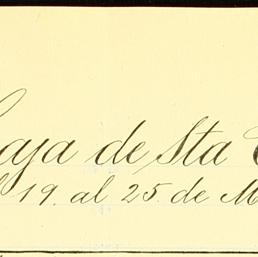 Caja de Sta
19. al 25. de M